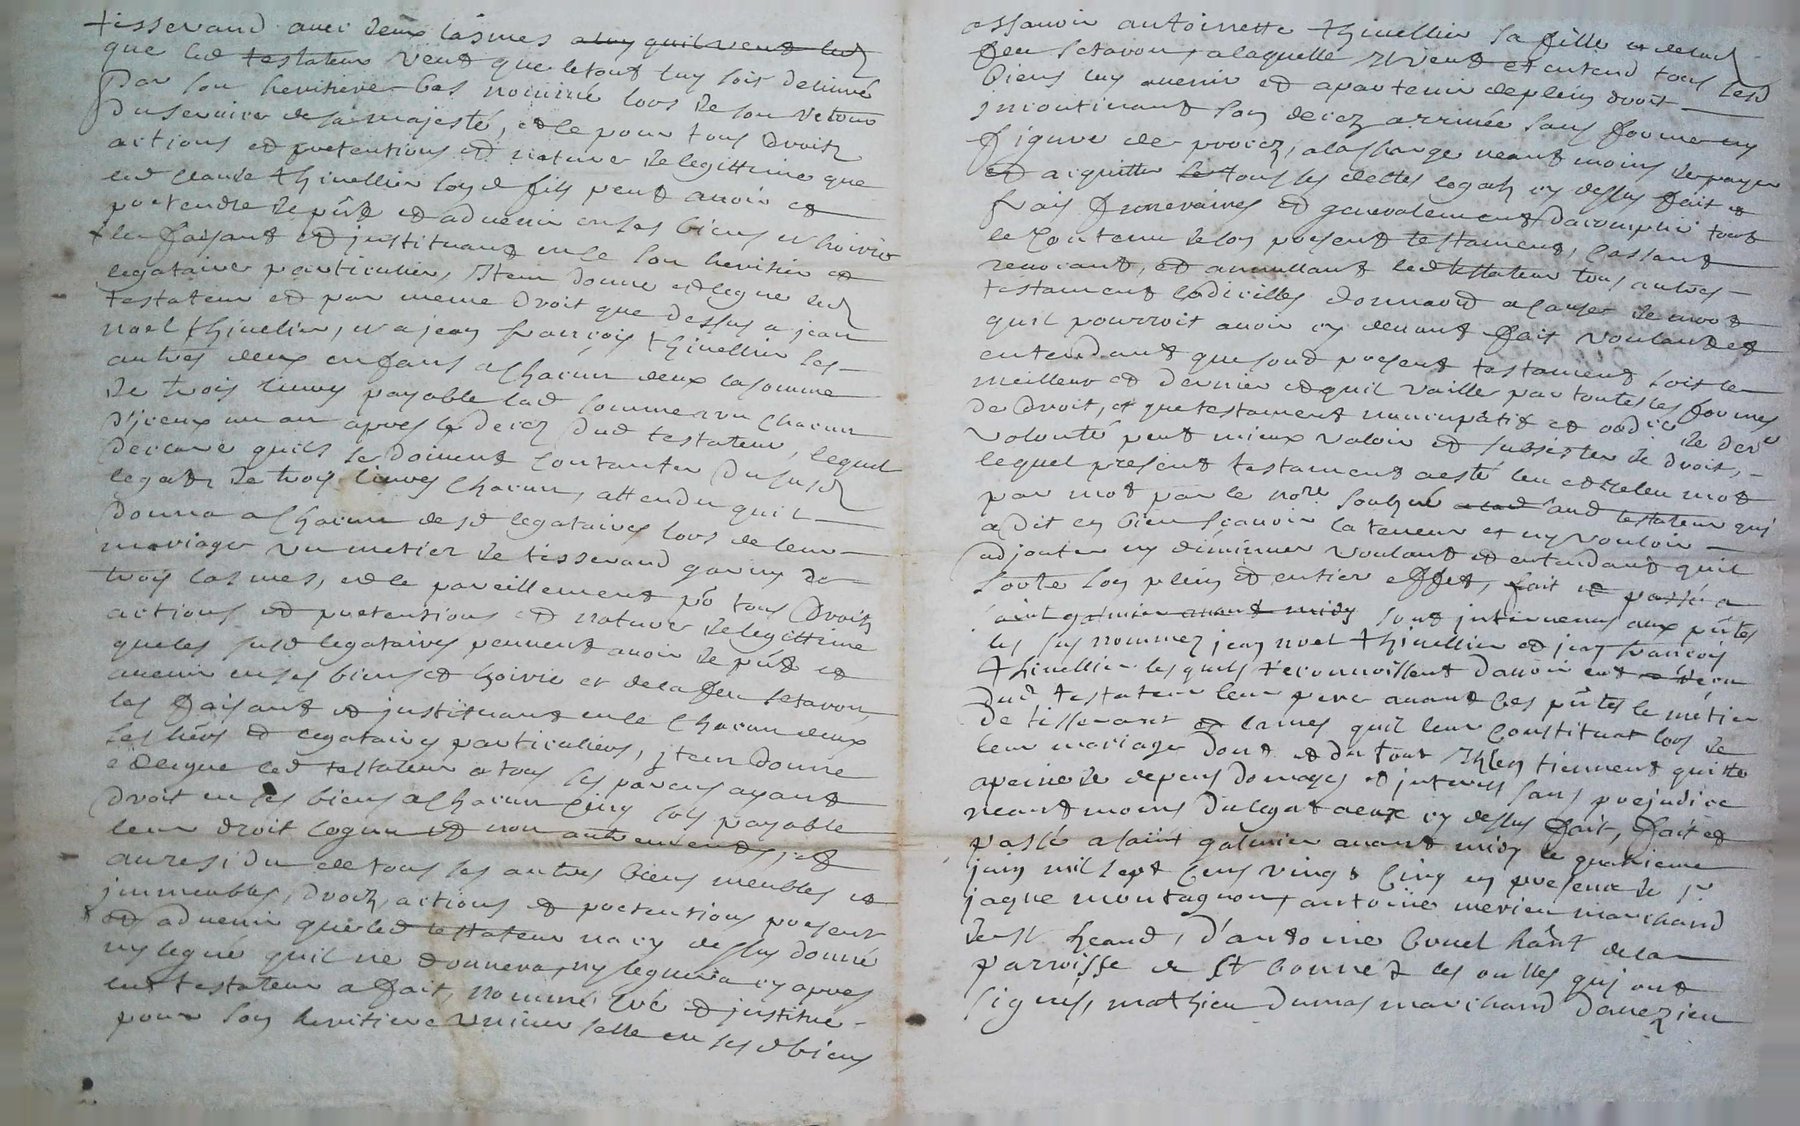 tisserand avec deux lasmes a luy quil veut led
que led testateur veut que le tout luy soit delivré
par son heritiere bas nommé lors de son retour
du service de sa majesté, et le pour tous droits
actions et pretentions et nature de legittime que
led claude thivellier sond fils peut avoir et
pretendre de pnt et advenir en ses biens et hoirie
le faisant et instituant en ce son heritier et
legataire particulier, Item donne et legue led
testateur et par meme droit que dessus a jean
noel thivelier, et a jean françois thivellier ses
autres deux enfans a chacun deux la somme
de trois livres payable lad somme a un chacun
d'iceux un an apres le decez dud testateur, lequel
declare quils se doivent contanter dususd
legat de trois livres chacun, attendu quil
donna a chacun desd legataires lors de leur
mariage un metier de tisserand garny de
trois lasmes, et le pareillement po tous droits
actions et pretentions et nature de legittime
que les susd legataires peuvent avoir de pnt et
avenir en ses biens et hoirie et de la feu setavon,
les faisant et instituant en ce chacun deux
ses hers et legataires particuliers, jtem donne
et legue led testateur a tous ses parens ayant
droit en ses biens a chacun cinq sols payable
leur droit cognu et non autrement, et
au residu de tous ses autres biens meubles et
immeubles, droitz, actions et pretentions present
et advenir que led testateur na cy dessus donné
ny legué quil ne donnera, ny leguera cy apres
led testateur a fait, nommé cré et institué
pour son heritiere universelle en sesd biens
assavoir antoinette thivellier sa fille et delad
feu setavon, a laquelle il veut et entend tous sesd
biens luy avenir et apartenir de plein droit
incontinant son decez arrivée sans forme ny
figure de procez, a la charge neantmoins de payer
et acquitter tous ses dettes legatz cy dessus fait et
frais funeraires et generalement dacomplir tout
le contenu de son present testament, cassant
revocant, et annullant led testateur tous autres
testament codicilles donnaon a cause de mort
quil pourroit avoir cy devant fait voulant et
entendant que sond present testament soit le
meilleur et dernier et quil vaille par toutes les formes
de droit, et que testament nuncupatif et codicile de dere
volonté peut mieux valoir et subsister de droit,
lequel present testament a esté leu et releu mot
par mot par le nore soubné aud testateur qui
a dit en bien sçavoir la teneur et ny vouloir
adjouter ny diminuer voulant et entendant quil
sorte son plein et entier effet, fait et passé a
saint galmier avant midy sont intervenus aux pntes
les sus nommez jean noel thivellier et jean françois
thivellier lesquels reconnoissent davoir eut et receu
dud testateur leur pere avant ces pntes le métier
de tisserant et lames quil leur constituat lors de
leur mariage dont et du tout Ils len tiennent quitte
a peine de depens domages et interets sans prejudice
neantmoins du legat a eux cy dessus fait, fait et
passé a saint galmier avant midy le quatrieme
juin mil sept cens vingt cinq en presence de sr
jaque montagnon, antoine merieu marchand
de st heand, d'antoine bonel hant de la
parroisse de St bonnet les oulles qui ont
signes, mathieu dumas marchand davezieu